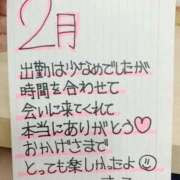 2月
出勤は少なめでしたが
時間を合わせて
会いに来てくれて
本当にありがとう♡
おかげさまで
とっても楽しかったよ☺